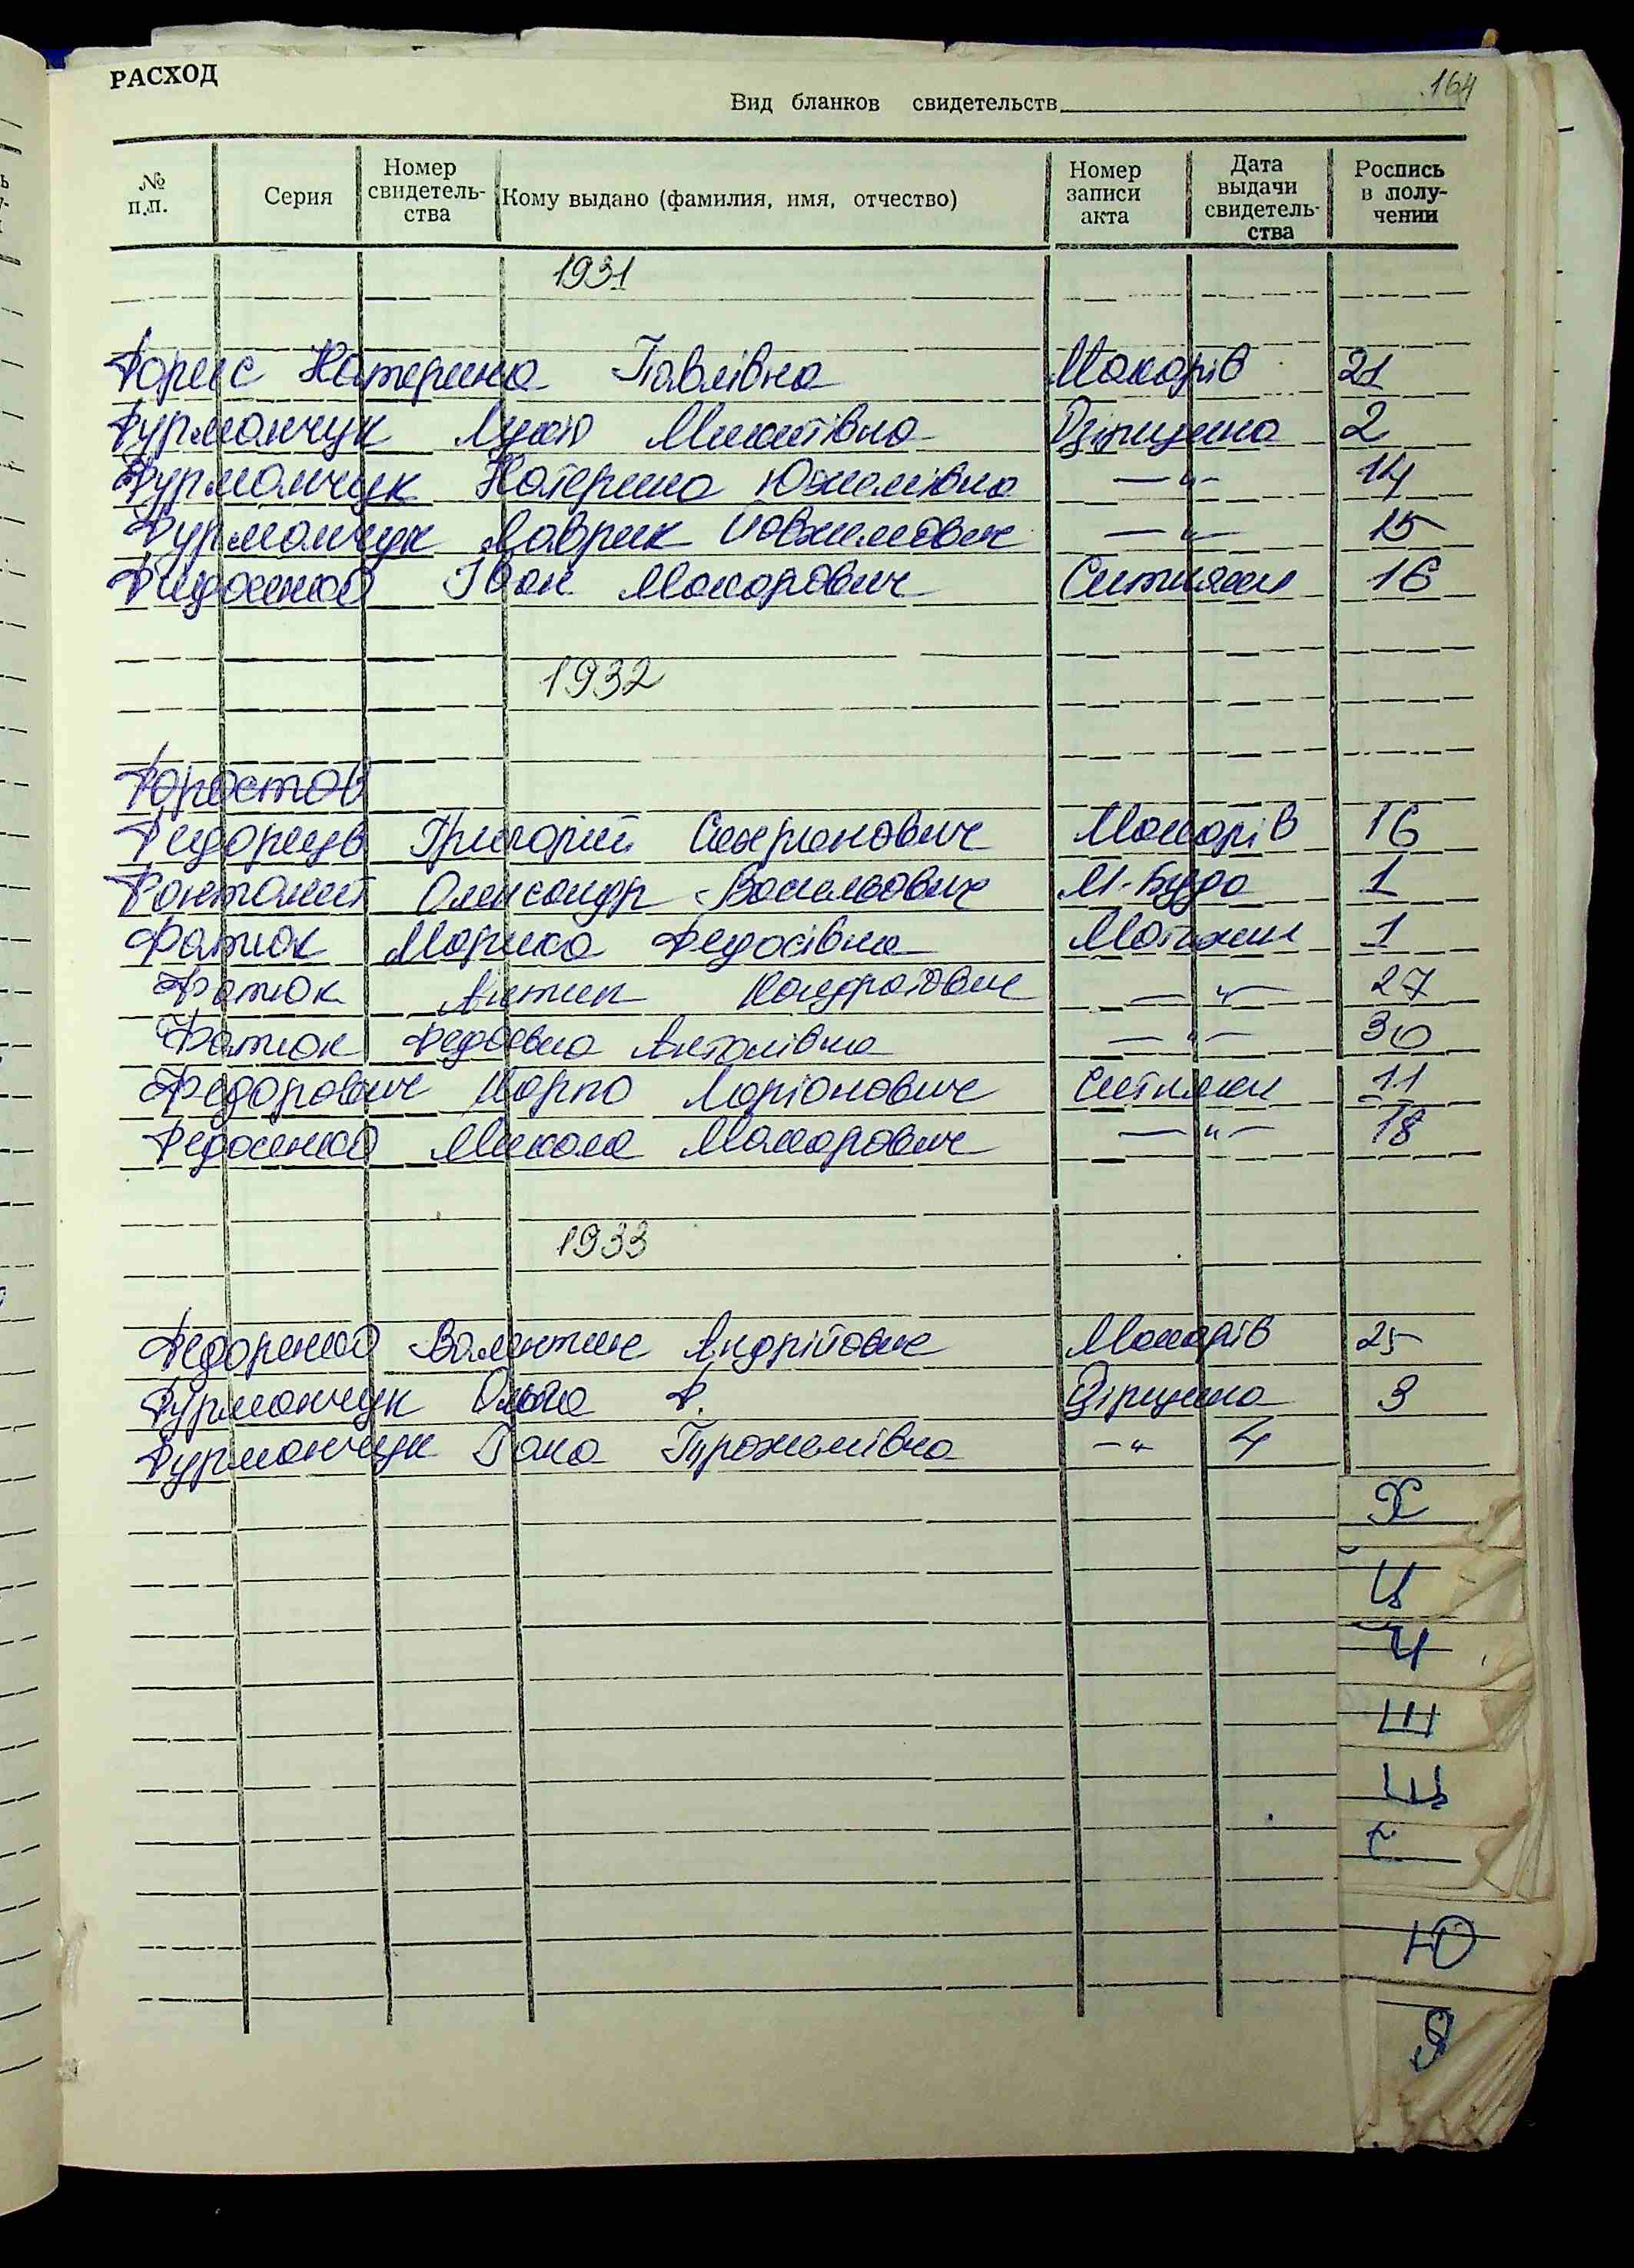 164
РАСХОД
Вид бланков свидетельств
№ п.п. Серия Номер свидетель-ства Кому выдано (фамилия, имя, отчество) Номер записи акта Дата выдачи свидетель-ства Роспись в полу-чении
1931
Катерина Павлівна Макарів 21
Фурманчук Микитівна 2
Фурманчук Катерина Южимівна —"— 14
Фурманчук Лаврик —"— 15
Іван Макарович Ситняки 16
1932
Форостов
Григорій Макарів 16
Олександр Васильович М-Буда 1
Фатюк Марика Федосівна Мотижин 1
Фатюк Антип Кондратович —"— 27
Фатюк Антонівна —"— 30
Федорович Карпо Ларіонович Ситняки 11
Федосенко Микола Макарович —"— 18
1933
Федоренко Валентин Андрійович Макарів 25
Фурманчук Ольга Ф. 3
Фурманчук Гана —"— 4
Х
Ц
Ч
Ш
Щ
Ю
Я